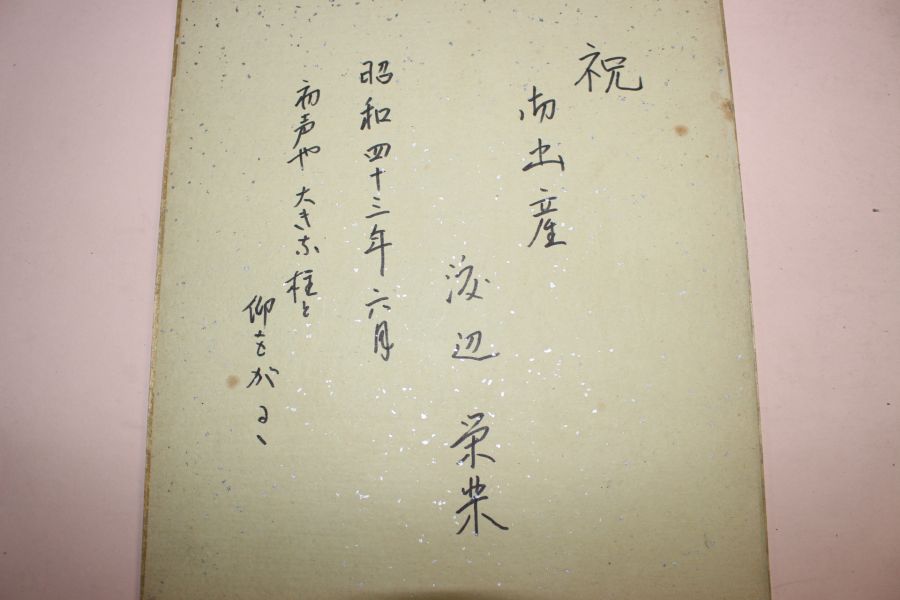 祝
御出産
渡辺 栄
昭和四十三年 六月
初声や 大きな 柱と
仰